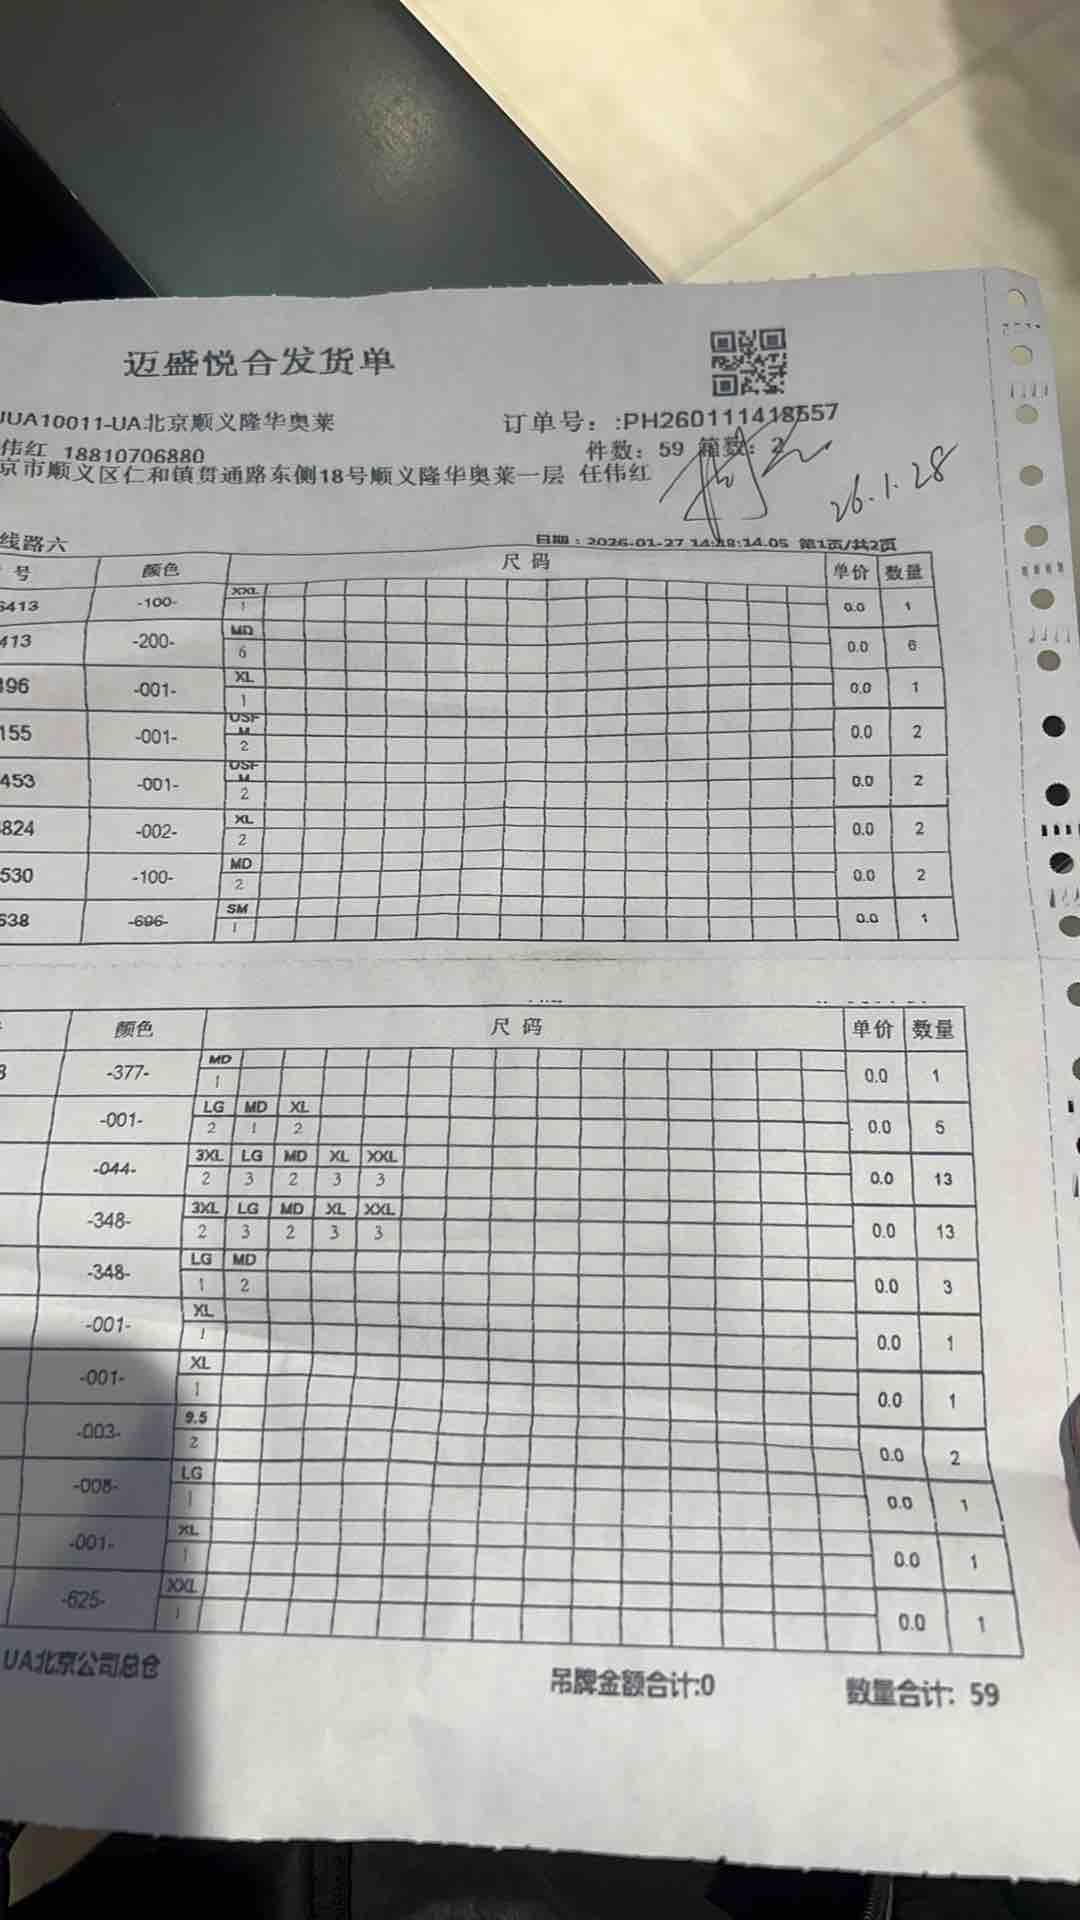 迈盛悦合发货单
UA10011-UA北京顺义隆华奥莱 订单号：:PH260111418557
伟红 18810706880 件数：59 箱数：2
京市顺义区仁和镇贯通路东侧18号顺义隆华奥莱一层 任伟红
26.1.28
线路六 日期：2026-01-27 14:48:14.05 第1页/共2页
号 颜色 尺码 单价 数量
6413 -100- XXL 0.0 1
1
413 -200- MD 0.0 6
6
196 -001- XL 0.0 1
1
155 -001- USF M 0.0 2
2
453 -001- USF M 0.0 2
2
824 -002- XL 0.0 2
2
530 -100- MD 0.0 2
2
638 -696- SM 0.0 1
1
颜色 尺码 单价 数量
-377- MD 0.0 1
1
-001- LG MD XL 0.0 5
2 1 2
-044- 3XL LG MD XL XXL 0.0 13
2 3 2 3 3
-348- 3XL LG MD XL XXL 0.0 13
2 3 2 3 3
-348- LG MD 0.0 3
1 2
-001- XL 0.0 1
1
-001- XL 0.0 1
1
-003- 9.5 0.0 2
2
-008- LG 0.0 1
1
-001- XL 0.0 1
1
-625- XXL 0.0 1
1
UA北京公司总仓 吊牌金额合计:0 数量合计: 59